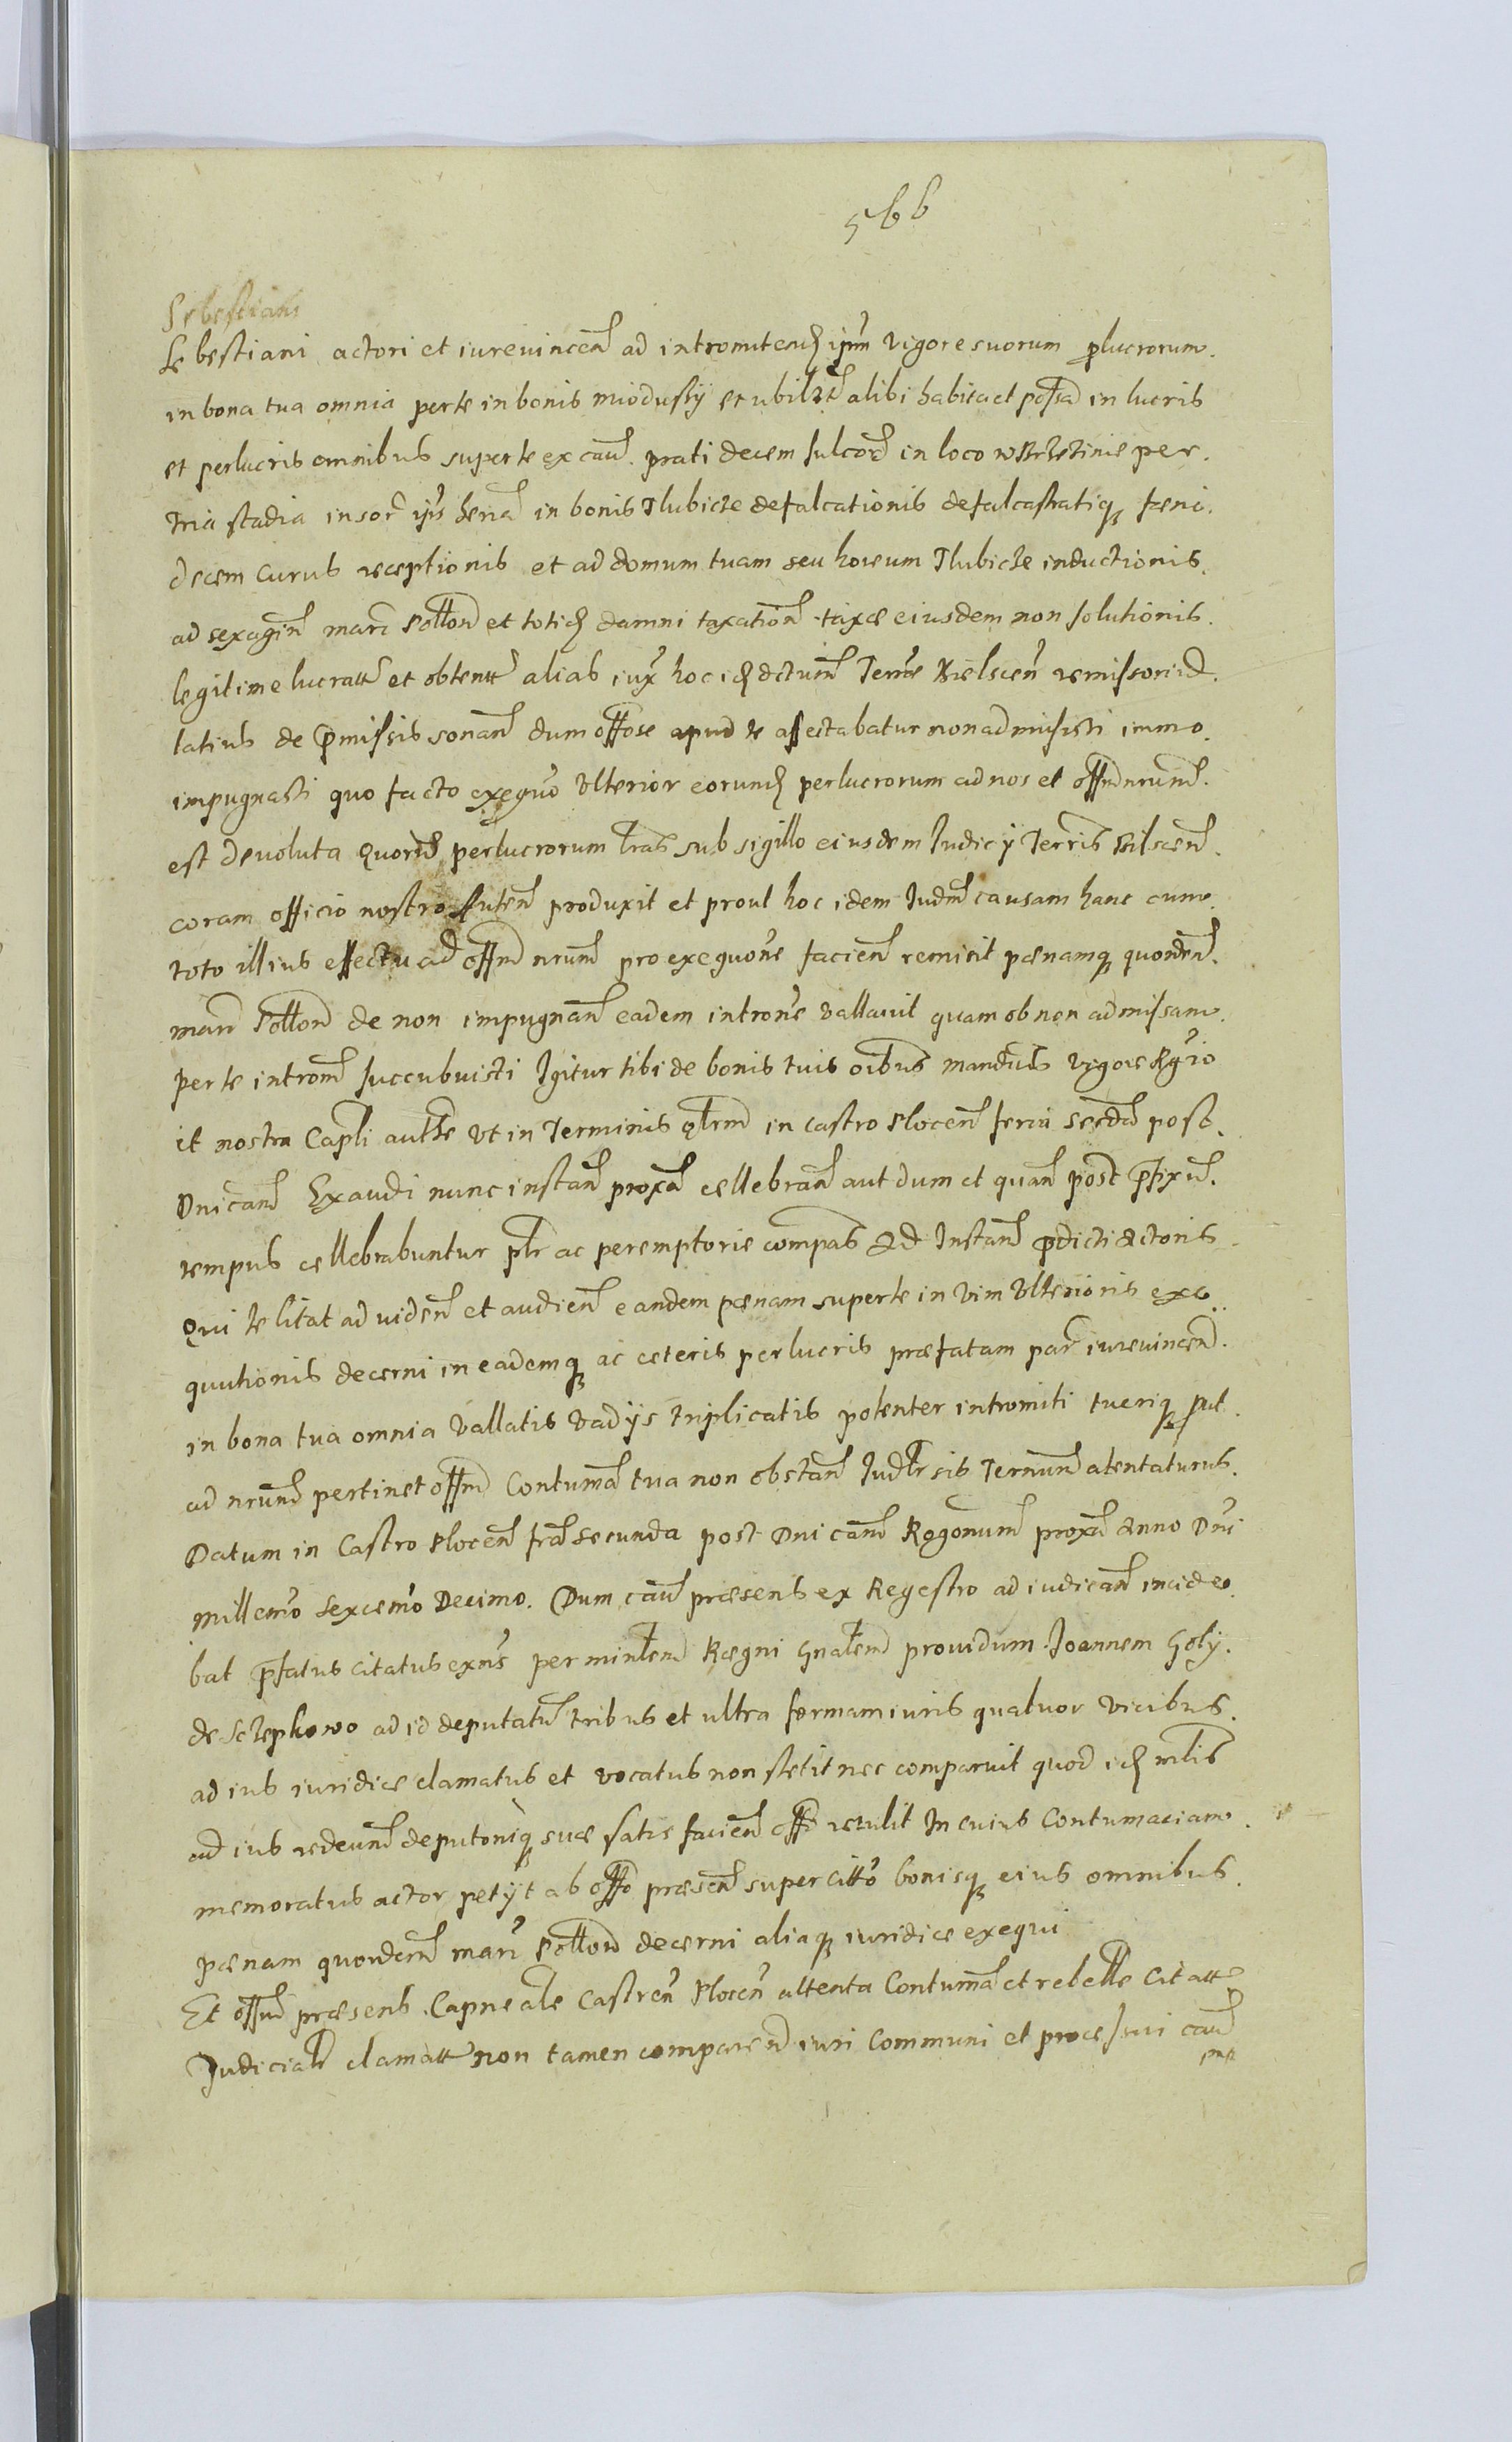 566
Sebestiani
Sebestiani actori et iureuincen ad intromitend ipm vigore suorum perlucrorum
in bona tua omnia per te in bonis Miodussy et ubilzt alibi habita et possa in lucris
et perlucris omnibus super te ex cau prati decem sulcor in loco per
tria stadia in sor ips hena in bonis Tlubicze defalcationis defalcastratiq faeni
decem curus receptionis et ad domum tuam seu horeum Tlubicze inductionis
ad sexagin marc Pollon et totid damni taxation taxae eiusdem non solutionis
legitime lucratt et obtentt alias iux hoc id actum Terrae Bielscen remissoriu
latius de pmissis sonan dum offose apud te affectabatur non admisisti immo
impugnasti quo facto exequo ulterior eorund perlucrorum ad nos et offm nrum
est devoluta quoru perlucrorum lras sub sigillo eiusdem Iudicy Terris Bilscen
coram officio nostro auten produxit et prout hoc idem Iudm causam hanc cum
toto illius effectu ad offm nrum pro exequone facien remisit paenamq quorden
marc Pollon de non impugnan eadem introne vallauit quam ob non admissam
per te introm succubuisti Igitur tibi de bonis tuis oibus mandus vigore Rgio
et nostra Capli autte ut in Terminis qlrm in castro Plocen feria secda post
Dnicam Exaudi nunc instan proxa cellebran aut dum et quan post pfixu
tempus cellebrabuntur plr ac peremptorie compas Ad Instan pdicti Actoris
Qui te citat ad viden et audien eandem paenam super te in vim ulterioris exe
quutionis decerni in eademq ac ceteris perlucris praefatam par iureuincen
in bona tua omnia vallatis vadys triplicatis potenter intromiti tueriq put
ad nrum pertinet offm Contuma tua non obstan Iudlr sis Terminum atentaturus
Datum in Castro Plocen fra secunda post Dnicam Rogonum proxa Anno Dni
millemo sexcemo Decimo. Dum cau praesens ex Regestro ad iudican incide
bat pfatus citatus exns per minlem Regni Gnalem prouidum Joannem Goly
de Sczepkowo ad id deputatu tribus et ultra formam iuris quatuor vicibus
ad ius iuridice clamatus et vocatus non stetit nec comparuit quod id mlis
ad ius redeun deputoniq suae satis facien offo retulit In cuius Contumaciam
memoratus actor petyt ab offo praesen super citto bonisq eius omnibus
paenam quordem marc Pollon decerni aliaq iuridice exequi
Et offm praesens Capneale castren Plocen attenta Contuma et rebelle Citatt
Judicialr clamatt non tamen comparen iuri Communi et processui cau